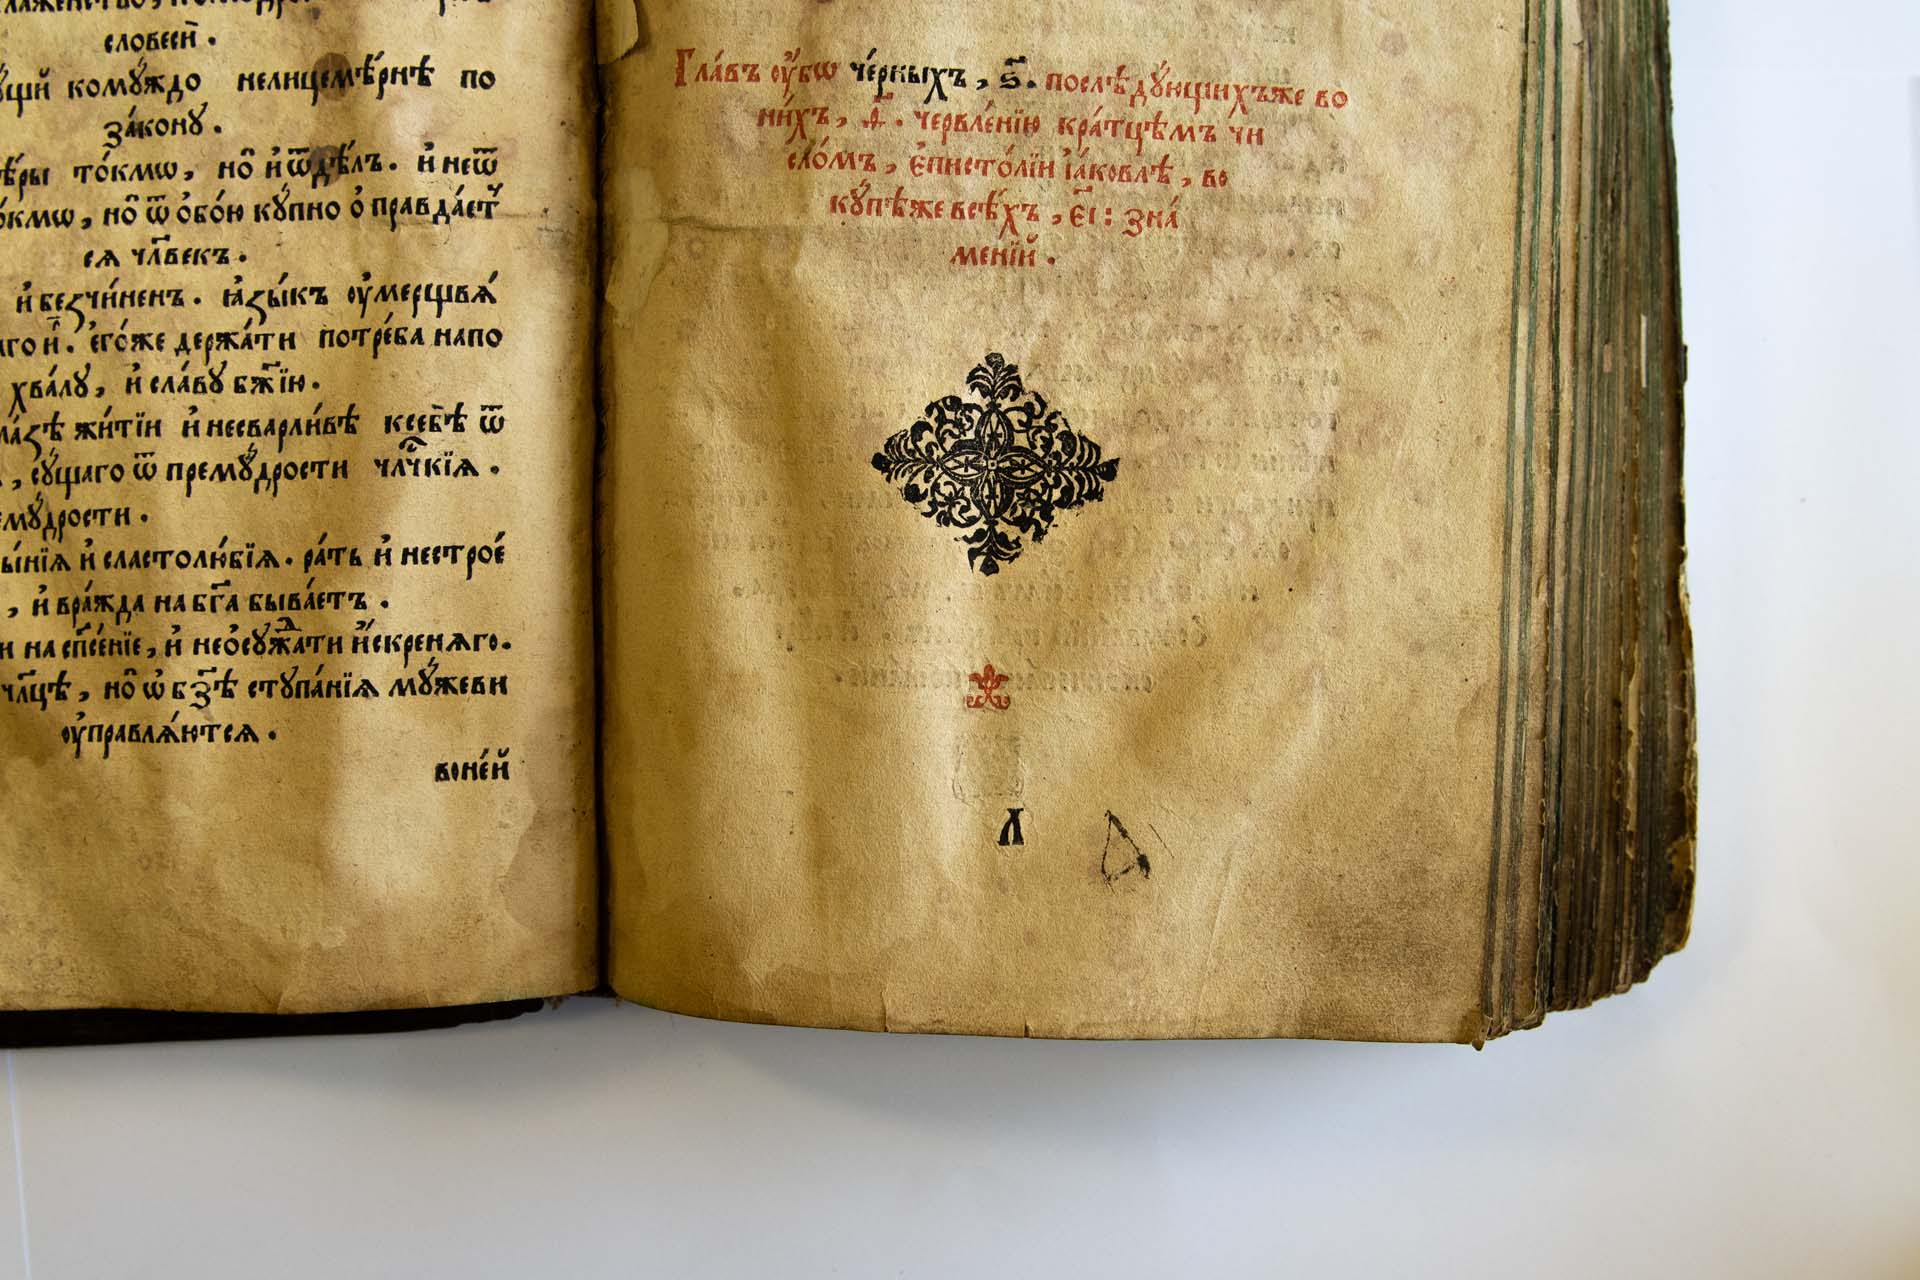 словесѝ .
комꙋ́ждо нелицемѣ́рнѣ по
зако́нꙋ .
то́кмѡ , но̑ и҆ ѿ дѣ́лъ . и҆ неѿ
но̑ ѿ ѻ҆бо́ю кꙋ́пно ѻ҆правда́ет̾
сѧ чл҃векъ .
и҆ безчи́ненъ . ꙗ҆зы́къ ᲂу҆мерщвѧ́
є҆го́же держа́ти потре́ба напо
хва́лꙋ , и҆ сла́вꙋ бж҃їю .
жи́тїи и҆ несварли́вѣ ксебѣ̀ ѿ
, сꙋ́щаго ѿ премꙋ́дрости чл҃чкїѧ .
мꙋ́дрости .
и҆ сластолю́бїѧ . ра́ть и҆ нестрое́
, и҆ вра́жда на бг҃а быва́етъ .
на сп҃се́нїе , и҆ неѻ҆сꙋжⷣа́ти и҆́скренѧго .
но̑ ѡ҆ бз҃ѣ стꙋпа́нїѧ мꙋ́жеви
ᲂу҆правлѧ́ютсѧ .
воне́й
Гла́въ ᲂу҆́бѡ че́рныхъ , ѕ҃ . послѣ́дꙋющихъже во
ни́хъ , д҃ . червле́нїю кра́тцѣмъ чи
сло́мъ , є҆писто́лїи і҆а́ковлѣ , во
кꙋ́пѣже всѣ́хъ , є҃і : зна́
менїй .
л